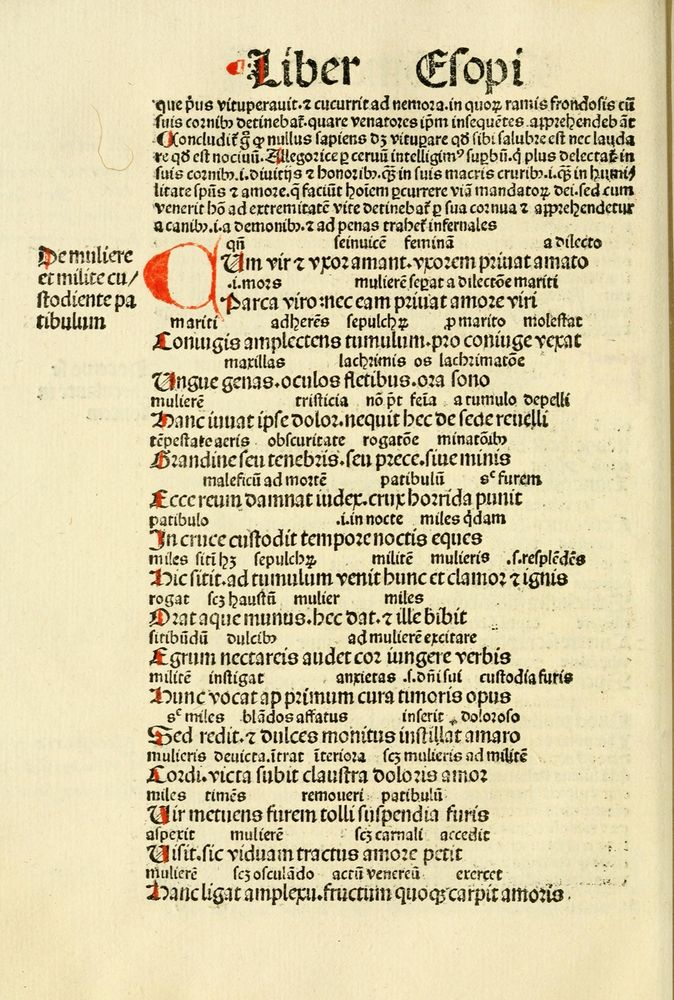 Liber Esopi
que p̄us vituperauit. ⁊ cucurrit ad nemora. in quoꝝ ramis frondosis cū
suis cornibꝰ detinebat᷑. quare venatores ip̄m insequētes apprehendebāt
Concludit᷑ ḡ ꝙ nullus sapiens dꝫ vitupare qd̄ sibi salubre est nec lauda
re qd̄ est nociuū. Allegorice ꝑ ceruū intelligimꝰ supbū. q̄ plus delectat᷑ in
suis cornibꝰ .i. diuitijs ⁊ honoribꝰ. qꝫ in suis macris cruribꝰ .i. qꝫ in humi/
litate spūs ⁊ amore. q̄ faciūt hoīem ꝑcurrere viā mandatoꝝ dei. sed cum
venerit hō ad extremitatē vite detinebat᷑ ꝑ sua cornua ⁊ apprehendetur
a canibꝰ .i. a demonibꝰ ⁊ ad penas trahet᷑ infernales
De muliere
et milite cu/
stodiente pa
tibulum
qn̄ seinuicē feminā a dilecto
CUm vir ⁊ vxor amant. vxorem priuat amato
.i. mors mulierē sepat a dilectōne mariti
Parca viro: nec eam priuat amore viri
mariti adherēs sepulchꝝ ꝓ marito molestat
Coniugis amplectens tumulum. pro coniuge vexat
maxillas lachrimis os lachrimatōe
Ungue genas. oculos fletibus. ora sono
mulierē tristicia nō pt̄ feīa a tumulo depelli
Hanc iuuat ipse dolor. nequit hec de sede reuelli
tēpestate aeris obscuritate rogatōe minatōibꝰ
Grandine seu tenebris. seu prece. siue minis
maleficū ad mortē patibulū sꝫ furem
Ecce reum damnat iudex. crux horrida punit
patibulo .i. in nocte miles q̄dam
In cruce custodit tempore noctis eques
miles sitit hꝫ sepulchꝝ militē mulieris .s. resplēdēs
Hic sitit. ad tumulum venit hunc et clamor ⁊ ignis
rogat scꝫ haustū mulier miles
Orat aque munus. hec dat. ⁊ ille bibit
sitibūdū dulcibꝰ ad mulierē excitare
Egrum nectareis audet cor iungere verbis
militē instigat anxietas .s. dn̄i sui custodia furis
Hunc vocat ap primum cura timoris opus
sꝫ miles blādos affatus inserit doloroso
Sed redit. ⁊ dulces monitus instillat amaro
mulieris deuicta. ītrat īteriora scꝫ mulieris ad militē
Cordi. victa subit claustra doloris amor
miles timēs remoueri patibulū
Uir metuens furem tolli suspendia furis
aspexit mulierē scꝫ carnali accedit
Uisit. sic viduam tractus amore petit
mulierē scꝫ osculādo actū venereū exercet
Hanc ligat amplexu. fructum quoqꝫ carpit amoris.